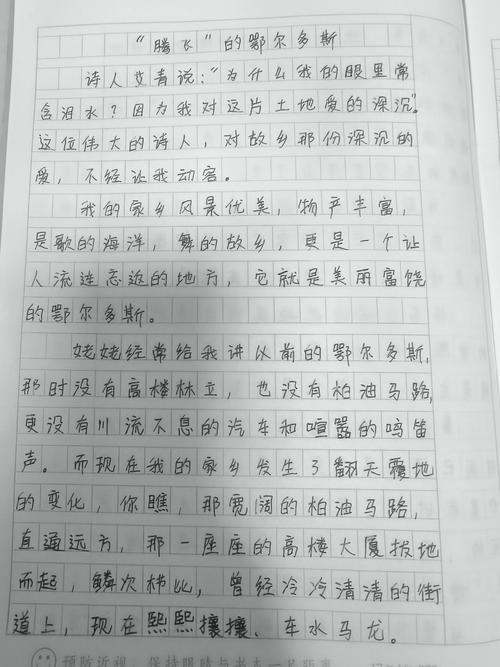 “腾飞”的鄂尔多斯
诗人艾青说:“为什么我的眼里常
含泪水?因为我对这片土地爱的深沉”。
这位伟大的诗人,对故乡那份深沉的
爱,不经让我动容。
我的家乡风景优美,物产丰富,
是歌的海洋,舞的故乡,更是一个让
人流连忘返的地方,它就是美丽富饶
的鄂尔多斯。
姥姥经常给我讲以前的鄂尔多斯,
那时没有高楼林立,也没有柏油马路,
更没有川流不息的汽车和喧嚣的鸣笛
声。而现在我的家乡发生了翻天覆地
的变化,你瞧,那宽阔的柏油马路,
直通远方,那一座座的高楼大厦拔地
而起,鳞次栉比,曾经冷冷清清的街
道上,现在熙熙攘攘、车水马龙。
预防近视,保持眼睛与书本一尺距离